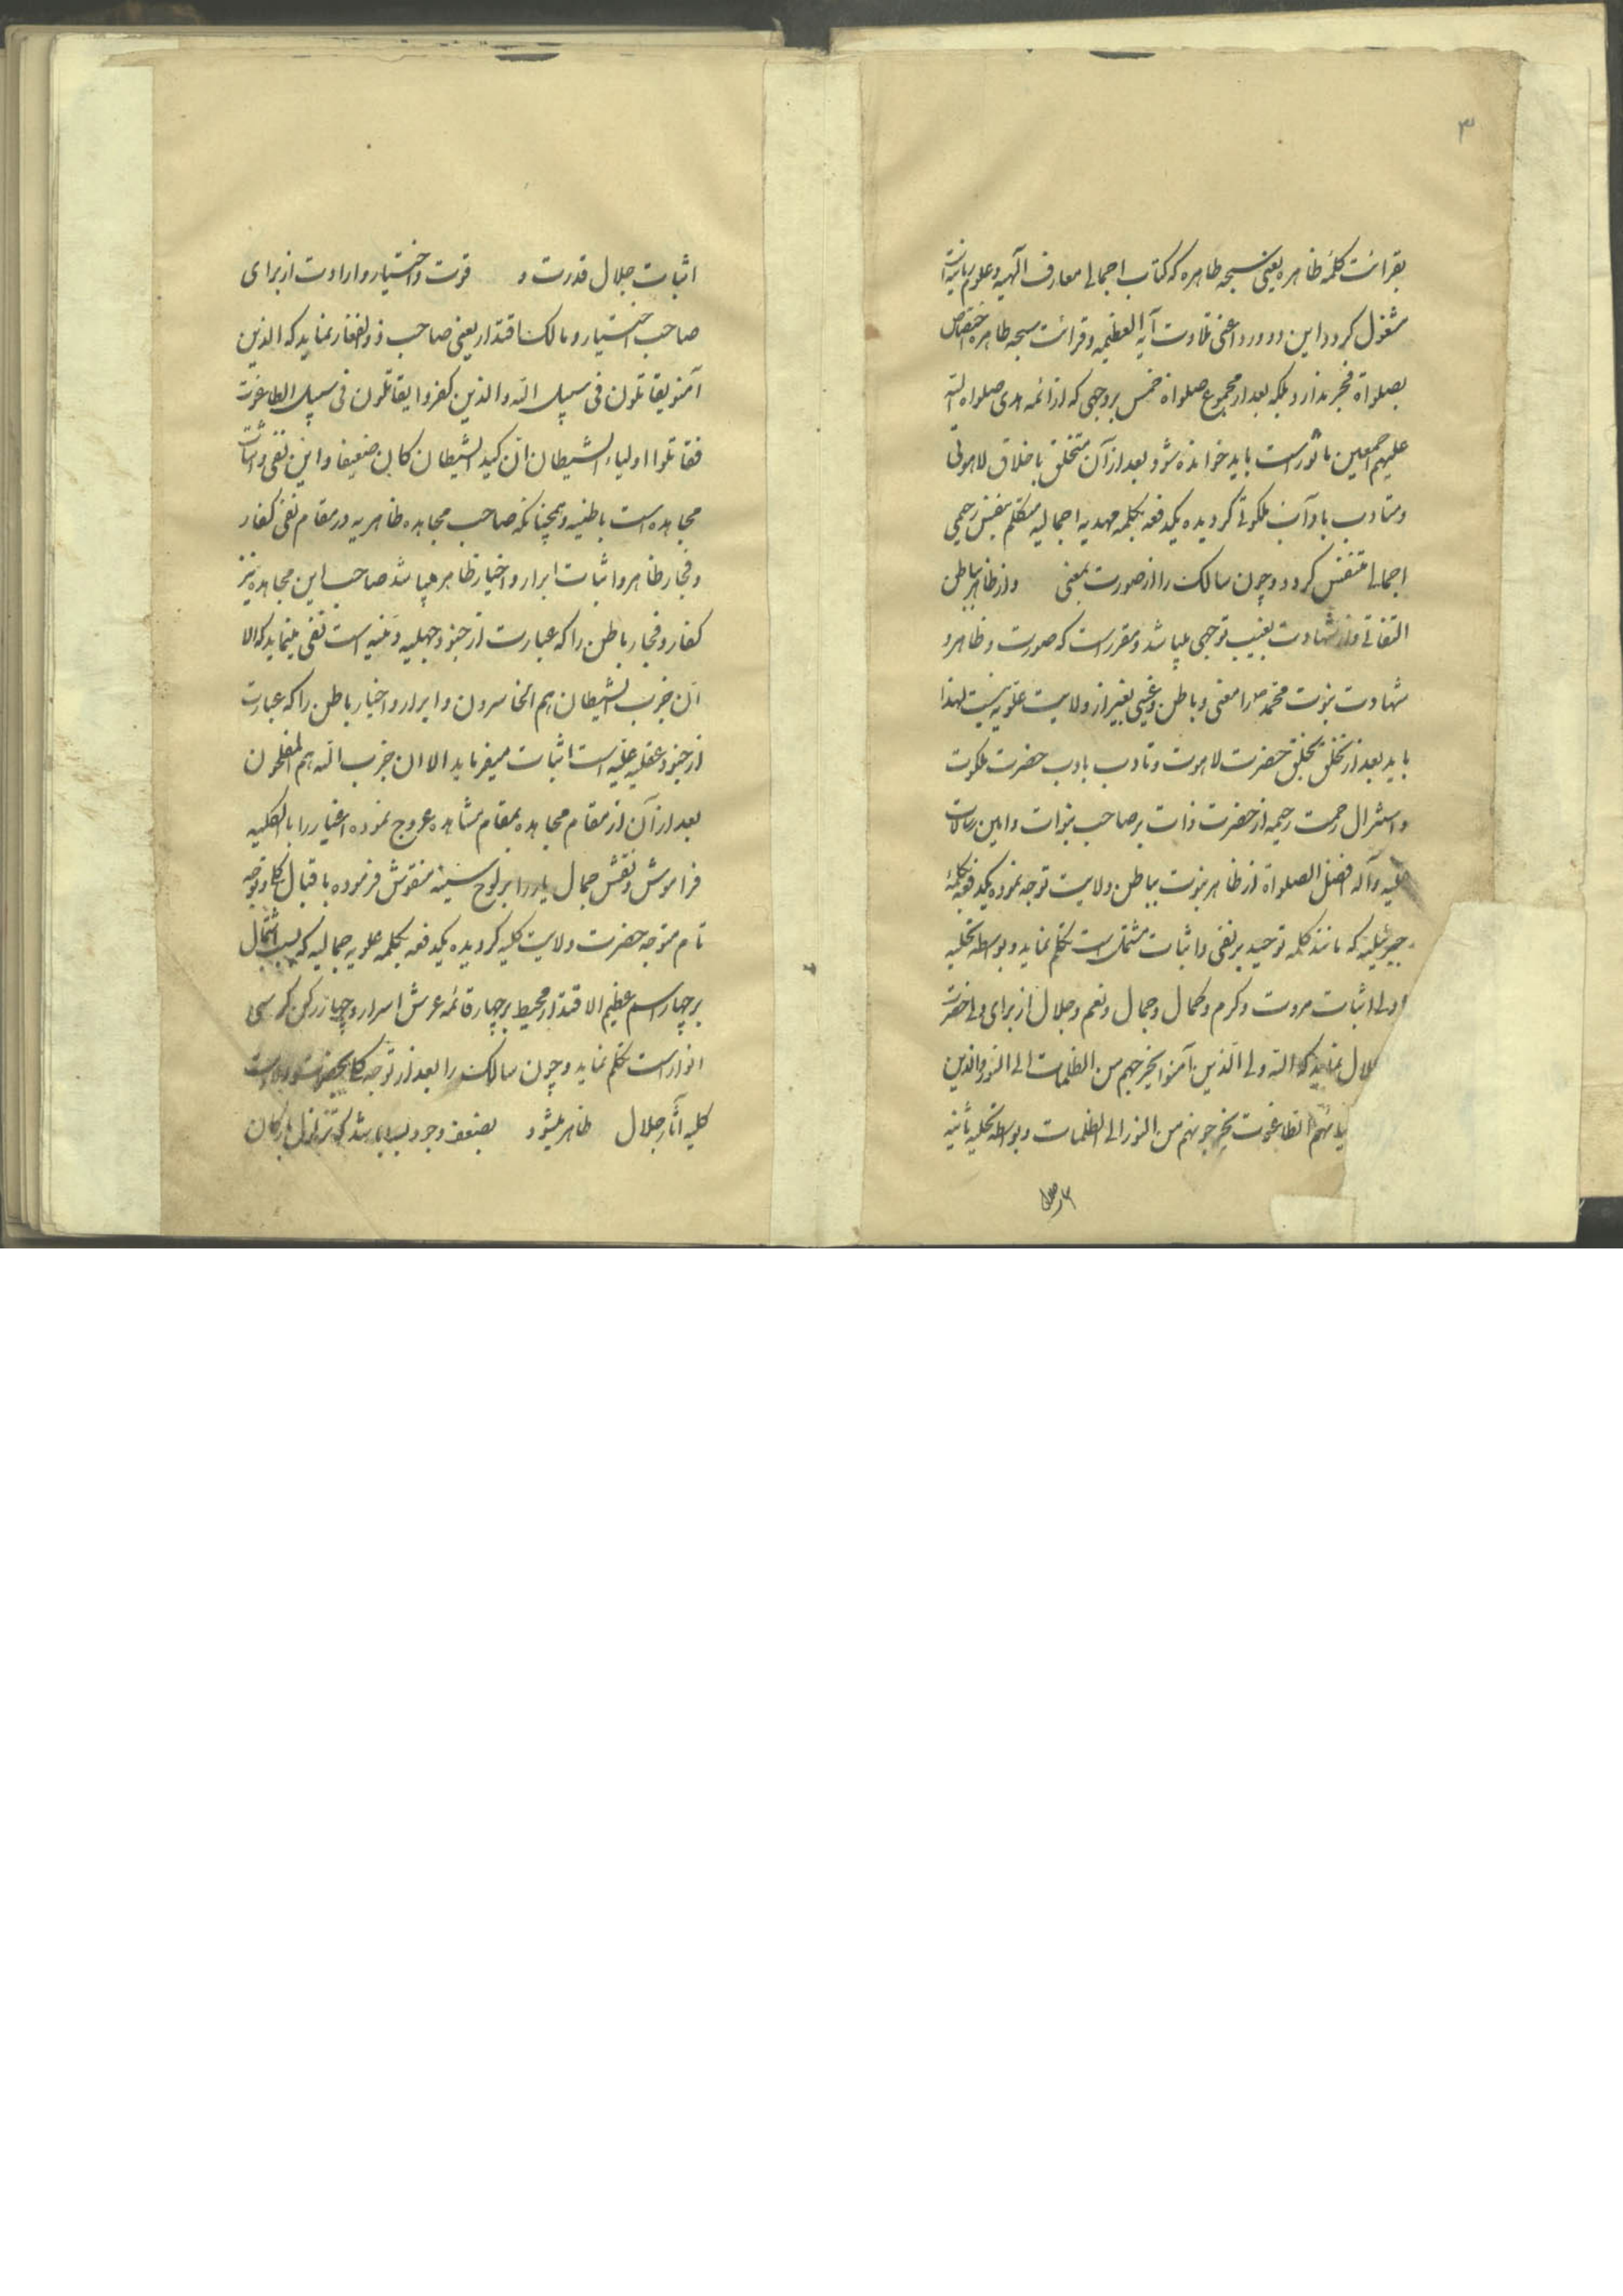 ۳
بقرائت کلمه ظاهره یعنی سبحه طاهره که کتاب اجمالی معارف الهیه و علوم ربانیه است
مشغول کردد این دو ورد اعنی تلاوت آیه العظیمه و قرائت سبحه طاهره اختصاص
بصلواة فجر ندارد بلکه بعد از مجموع صلواة خمس بروجهی که از ائمه هدی صلواه الله
علیهم اجمعین ماثور است باید خوانده شود بعد از آن متخلق باخلاق لاهوتی
و متادب بآداب ملکوتی کردیده یکدفعه بکلمه مهدیه اجمالیه متکلم بنفس رحیمی
اجمالی متنفس کردد و چون سالک را از صورت بمعنی و از ظاهر بباطن
التفاتی و از شهادت بغیب توجهی میباشد و مقرر است که صورت و ظاهر و
شهادت نبوت محمد را معنی و باطن و غیبی بغیر از ولایت علویه نیست لهذا
باید بعد از تخلق بخلق حضرت لاهوت و تادب بادب حضرت ملکوت
و استنزال رحمت رحیمه از حضرت ذات بر صاحب نبوات و امین رسالات
علیه وآله افضل الصلواة از ظاهر نبوت بباطن ولایت توجه نموده یکدفعه بکلمه
جبرئیلیه که مانند کلمه توحید بر نفی و اثبات مشتمل است تکلم نماید و بواسطه تخلیه
اولی اثبات مروت و کرم و کمال و جمال و نعم و جلال از برای ولی حضرت
نماید که الله ولی الذین آمنوا یخرجهم من الظلمات الی النور والذین
الطاغوت یخرجونهم من النور الی الظلمات و بواسطه تخلیه ثانیه
اثبات جلال قدرت و قوت و اختیار و ارادت از برای
صاحب اختیار و مالک اقتدار یعنی صاحب ذوالفقار نماید که الذین
آمنو یقاتلون فی سبیل الله والذین کفروا یقاتلون فی سبیل الطاغوت
فقاتلوا اولیاء الشیطان ان کید الشیطان کان ضعیفا و این نفی و اثبات
مجاهده است باطنیه و همچنانکه صاحب مجاهده ظاهریه در مقام نفی کفار
و فجار ظاهر و اثبات ابرار و اخیار ظاهر میباشد صاحب این مجاهده نیز
کفار و فجار باطن را که عبارت از جنود جهلیه است نفی مینماید که الا
ان حزب الشیطان هم الخاسرون و ابرار و اخیار باطن را که عبارت
از جنود عقلیه است اثبات میفرماید الا ان حزب الله هم المفلحون
بعد از آن از مقام مجاهده بمقام مشاهده عروج نموده اغیار را بالکلیه
فراموش و نقش جمال یار را بر لوح سینه منقوش فرموده باقبال کلی و توجه
تام متوجه حضرت ولایت کلیه کردیده یکدفعه بکلمه علویه جمالیه که بسبب اشتمال
بر چهار اسم عظیم الاقتدار محیط بر چهار قائمه عرش اسرار و چهار رکن کرسی
انوار است تکلم نماید و چون سالک را بعد از توجه کلی بحضرت ولایت
کلیه آثار جلال ظاهر میشود بضعف وجود بسیار باشد که تزلزل بارکان